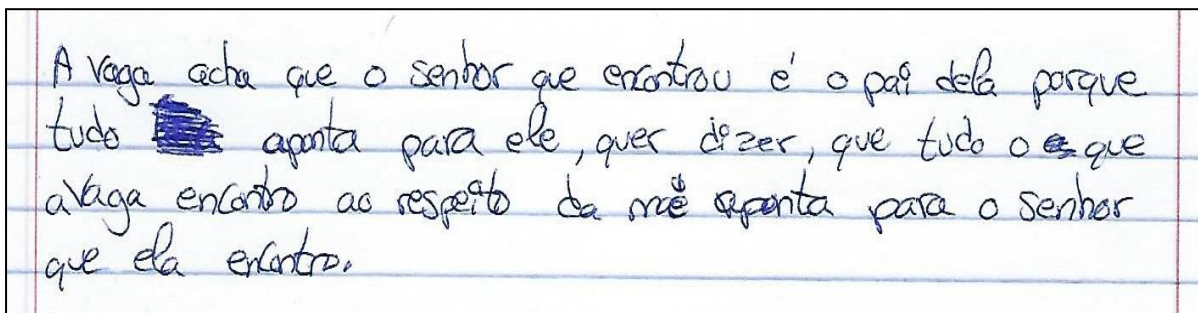 A Vaga acha que o senhor que encontrou é o pai dela porque
tudo aponta para ele, quer dizer, que tudo o que
a Vaga encontro ao respeito da mãe aponta para o senhor
que ela encontro.